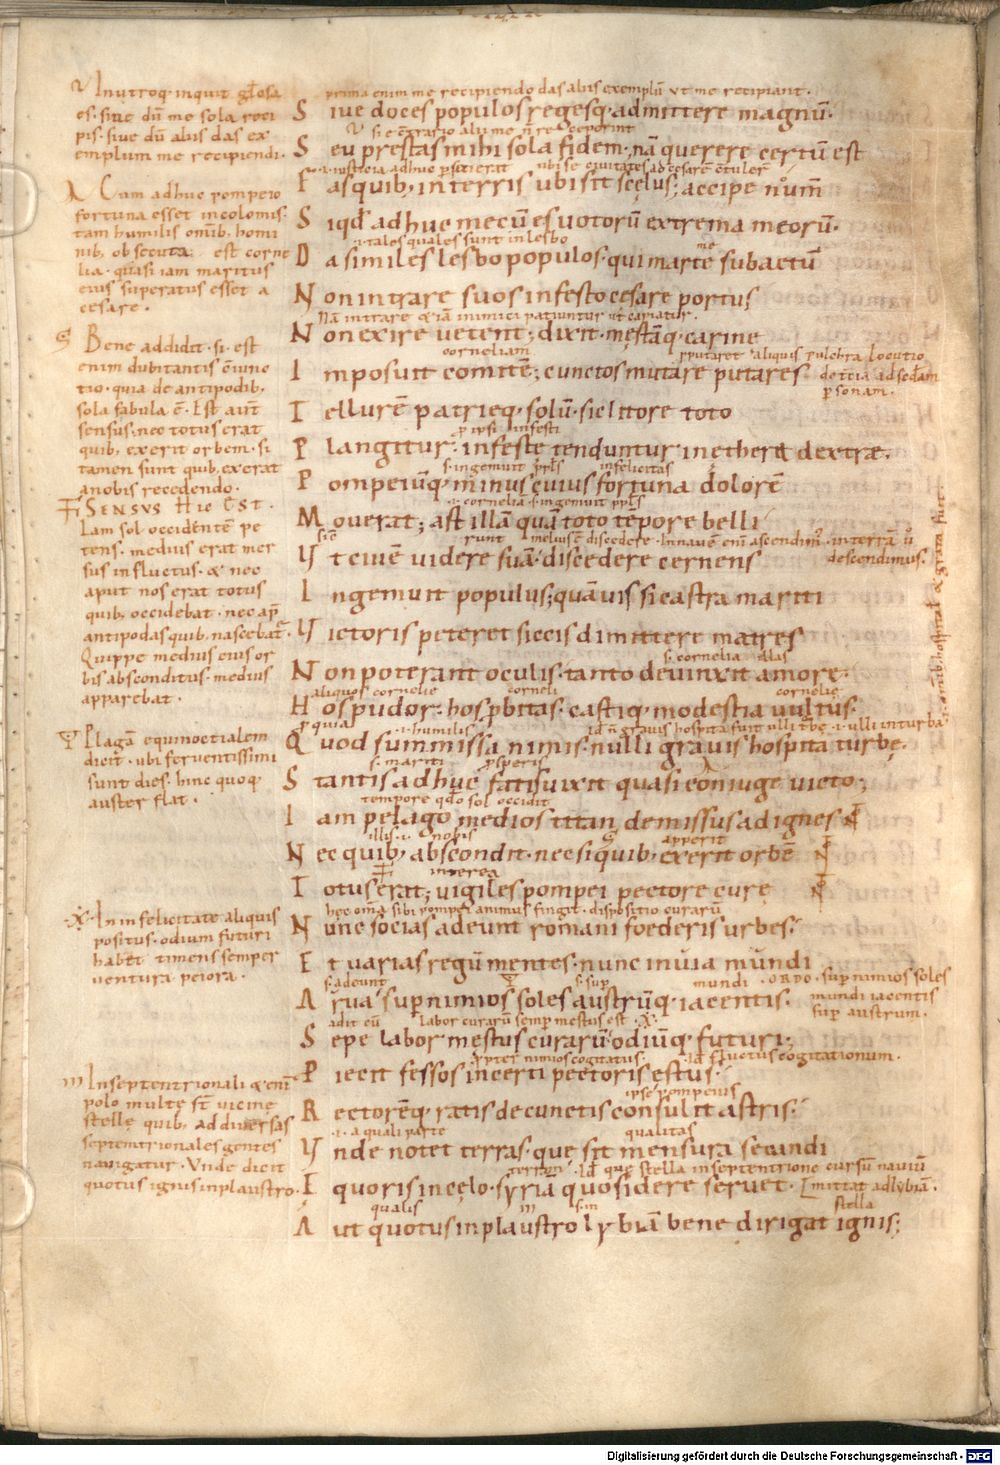 Inutroq· inquit glosa
es· siue dū me sola reci
pis· siue dū aliis das ex
emplum me recipiendi·
Cum adhuc pompeio
fortuna esset incolomis·
tam humilis omīb; homi
nib; obsecuta est corne
lia· quasi iam maritus
eius superatus esset a
cesare·
Bene addidit· si· est
enim dubitantis ꝯiunc
tio· quia de antipodib;
sola fabula ē· Est aut̄
sensus· nec totus erat
quib; exerit orbem· si
tamen sunt quib; exerat
anobis recedendo·
SENSVS HIC EST·
Iam sol occidentem pe
tens· medius erat mer
sus influctus· & nec
aput nos erat totus
quib; occidebat· nec ap̄
antipodas quib; nascebat̄·
Quippe medius eius or
bis absconditus· medius
apparebat·
Plagā equinoctialem
dicit· ubi feruentissimi
sunt dies· hinc quoq;
auster flat·
In infelicitate aliquis
positus· odium futuri
habet timens semper
uentura peiora·
Inseptentrionali & enī
polo multe sт̄ uicine
stelle quib; ad diuersas
septentrionales gentes
nauigatur· Vnde dicit
quotus ignis inplaustro·
prima enim me recipiendo das aliis exemplū vt me recipiant·
S iue doces populos regesq; admittere magnū·
S eu prestas mihi sola fidem· nā querere certū est
F as quib; in terris ubi sit scelus; accipe numḿ
S iqd̄ adhuc mecū es uotorū extrema meorū·
·i· tales quales sunt in lesbo
D a similes lesbo populos· qui marte subactū
N on intrare suos infesto cesare portus
Nā intrare &iā inimici patiuntur ut capiatur·
N on exire uetent; dixit· mestāq; carine
corneliam
pputaret aliquis pulchra locutio
I mposuit comitē; cunctos mutare putares
p̄sonam·
T ellurē patrieq; solū· sic litore toto
P langitur· infeste tenduntur inethera dextrae·
infelicitas
P ompeiūq; minus cuius fortuna dolorē
M ouerat; ast illā quā toto tēpore belli
descendimus·
V t ciuem uidere suā· discedere cernens
I ngemuit populus; quāuis si castra mariti
V ictoris peteret siccis dimittere matres
s· cornelia illas
N on poterant oculis· tanto deuinxit amore·
aliquos cornelie
cornelie
H os pudor· hos p̄bitas· castiq; modestia uultus·
·i· humilis
Q uod summissa nimis· nulli grauis hospita turbę·
s· mariti
p̄speris
S tantis adhuc fatis uixit quasi coniuge uicto;
tempore q̄do sol occidit
I am pelago medios titan demissus ad ignes
nobis
apperit
N ec quib; abscondit· nec si quib; exerit orbē
interea
T otus erat; uigiles pompei pectore curę
hec om̄a sibi pompei animus fingit· dispositio curarū
N unc socias adeunt romani foederis urbes·
E t uarias regū mentes· nunc inuia mundi
s· adeunt
mundi · ORDO· sup̄ nimios soles
mundi iacentis
sup̄ austrum·
A rua sup̄ nimios soles austrūq; iacentis·
labor curarū semp̄ mestus est ·X·
S epe labor mestus curarū· odiūq; futuri;
p̄pter nimios cogitatus·
Id ē fluctus cogitationum·
P iecit fessos incerti pectoris ęstus·
ipse pompeius
R ectorēq; ratis de cunctis consulit astris·
·i· a quali parte
qualitas
V nde notet terras· que sit mensura secandi
Id que stella in septentrione cursū nauiū
mittat ad lybiā·
E quoris in cęlo· syriā quo sidere seruet·
qualis
stella
A ut quotus in plaustro lybiā bene dirigat ignis;
Digitalisierung gefördert durch die Deutsche Forschungsgemeinschaft - DFG